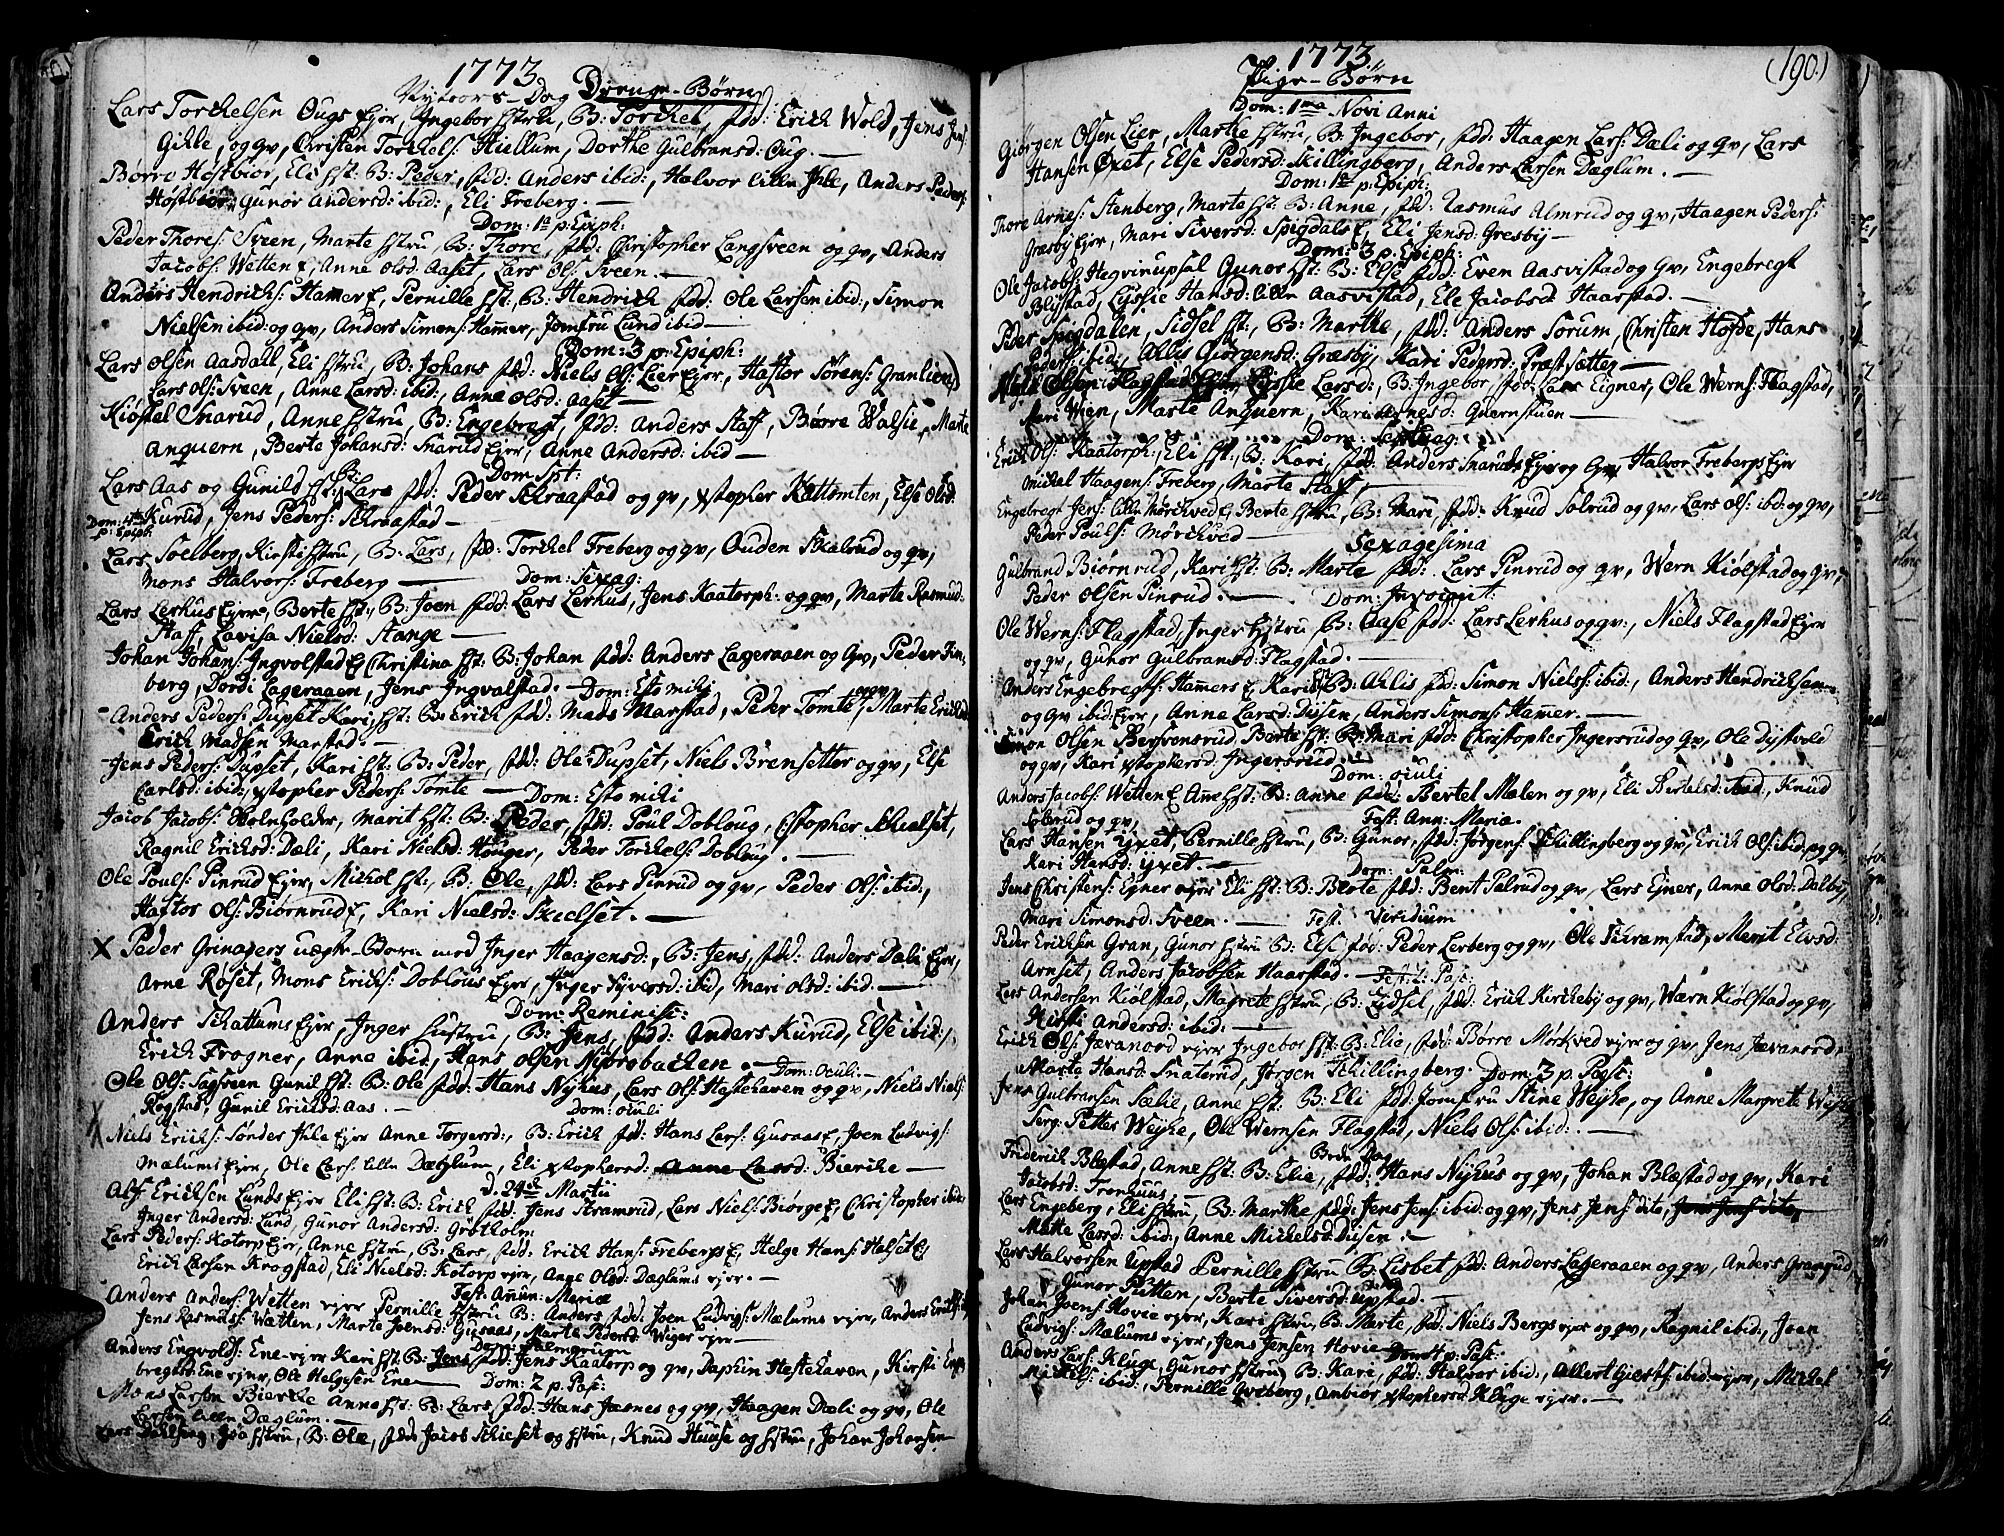 1773
Nytaars-Dag Drenge-Børn
Lars Torchelsen Ougs Ejer, Ingebor hstru, B: Torchel, fdd: Erich Wold, Jens Jens:
Gihle, og qv, Christen Torchels: Hiellum, Dorthe Gulbransd: Oug.
Børre Høstbiør, Eli hst: B: Peder, fdd: Anders ibid:, Halvor lille Ihle, Anders Peders:
Høstbiør, Gunor Andersd: ibid:, Eli Freberg.
Dom: 1ª p: Epiph:
Peder Thores: Sveen, Marte hstru, B: Thore, fdd: Christopher Langsveen og qv, Anders
Jacobs: Wetten E, Anne Olsd: Aaset, Lars Ols: Sveen.
Anders Hendrichs: Hamer E, Pernille hst:, B: Hendrich fdd: Ole Larsen ibid:, Simon
Nielsen ibid: og qv, Anders Simons: Hamer, Jomfru Lund ibid
Dom: 3 p: Epiph:
Lars Olsen Aasdall, Eli hstru, B: Johans fdd: Niels Ols: Lier Ejer, Haftor Sørens: Granlien,
Lars Ols: Sveen, Anne Larsd: ibid:, Anne Olsd: Aaset
Kiøstel Snarud, Anne hstru, B: Engebregt, fdd: Anders Staff, Børre Walsie, Marte
Anquern, Berte Johansd: Snarud Ejer, Anne Andersd: ibid
Dom: Spt:
Lars Aas og Gunild hst: B: Lars fdd: Peder Schraastad og qv, xstopher Kattomten, Else Olsd:
Kurud, Jens Peders: Schraastad
Dom: 4te p: Epiph:
Lars Soelberg, Kirsti hstru, B: Lars, fdd: Torchel Freberg og qv, Ouden Skalrud og qv,
Mons Halvors: Freberg
Dom: Sexag:
Lars Lerhus Ejer, Berte hst:, B: Joen fdd: Lars Lerhus, Jens Kaatorph: og qv, Marte Rasmusd:
Staff, Lavisa Nielsd: Stange
Johan Johans: Ingvolstad E, Christina hst: B: Johan fdd: Anders Lageraaen og qv, Peder Finberg,
Dordi Lageraaen, Jens Ingvalstad.
Dom: Esto mihi
Anders Peders: Dupset Kari hst: B: Erich fdd: Mads Marstad, Peder Tomte og qv, Marte Erichsd:
Erich Madsen Marstad.
Jens Peders: Dupset, Kari hst: B: Peder, fdd: Ole Dupset, Niels Brensetter og qv, Else
Carlsd: ibid:, xstopher Peders: Tomte
Dom: Esto mihi
Jacob Jacobs: Holnholder, Marit hst: B: Peder, fdd: Poul Dobloug, Cstopher Schielset,
Ragnil Ericksd: Dæli, Kari Nielsd: Honger, Peder Torchels: Dobloug.
Ole Pouls: Pinrud Ejer, Michol hst:, B: Ole, fdd: Lars Pinrud og qv, Peder Ols: ibid:,
Haftor Ols: Biørnrud E, Kari Nielsd: Skielset.
X Peder Grinagers uægte Barn med Inger Haagensd:, B: Jens, fdd: Anders Dæli Ejer,
Arne Roset, Mons Erichs: Doblous Ejer, Inger Syversd: ibid, Mari Olsd: ibid.
Dom: Reminisc:
Anders Schattums Ejer, Inger hustru, B: Jens, fdd: Anders Kurud, Else ibid:,
Erich Frogner, Anne ibid, Hans Olsen Nyprobachen.
Dom: Oculi.
Ole Ols: Sagsveen Gunil hst: B: Ole fdd: Hans Nyhus, Lars Ols: Hestehaven og qv, Niels Niels:
Rogstad, Gunil Ericksd: Aas.
Dom: Oculi
X Niels Erichs: Sønder Ihle Ejer Anne Torgersd:, B: Erich fdd: Hans Lars: Gusaas E, Joen Ludvigs:
Mælums Ejer, Ole Lars: lille Dæglum, Eli xstophersd: Anne Larsd: Bierche
d. 24de Martii
Alf Erichsen Lunds Ejer Eli hst: B: Erich fdd: Jens Stramrud, Lars Niels: Biørge E, Christopher ibid:
Inger Andersd: Lund, Gunor Andersd: Grøtholm
Lars Peders: Kotorp Ejer, Anne hstru, B: Lars, fdd: Erich Hans: Frebergs E, Helge Hans: Halset E
Erich Larsen Krogstad, Eli Nielsd: Kotorp ejer, Anne Olsd: Dæglums ejer.
Fest: Anun: Mariæ
Anders Anders: Wetten ejer Pernille hstru B: Anders fdd: Joen Ludvigs: Mælums ejer, Anders
Jens Rasmus: Wætten, Marte Joensd: Gusaas, Marte Pedersd: Wiger ejer
Dom: Palmarum
Anders Engvolds: Ene ejer Kari hst: B: Jens fdd: Jens Kaatorp og qv, Daphin Hestehaven, Kirsti Engebregtsd:
Ene ejer, Ole Helgesen Ene
Dom: 2 p: Pasc:
Mons Larsen Bierche Anne hst: B: Lars, fdd: Hans Jæsnes og qv, Haagen Dæli og qv, Ole
Larsen lille Dæglum.
Lars Dahlseng, Joa hstru, B: Ole, fdd: Jacob Schielset og hstru, Knud Huuse og hstru, Johan Johansen
1773
(190.)
Pige-Børn
Dom: 1ma Novi Anni
Giørgen Olsen Lier, Marthe hstru, B: Ingebor, fdd: Haagen Lars: Dæli og qv, Lars
Hansen Øxet, Else Pedersd: Skillingberg, Anders Larsen Dæglum.
Dom: 1ª p: Epiph:
Thore Arnes: Stenberg, Marte hst: B: Anne, fdd: Rasmus Almrud og qv, Haagen Peders:
Græsby Ejer, Mari Siversd: Spigdals E, Eli Jensd: Gresby
Dom: 3 p: Epiph:
Ole Jacobs: Hegvinupsal Gunor hst: B: Else fdd: Even Aasvistad og qv, Engebregt
Blystad, Lyssie Hansd: lille Aasvistad, Ele Jacobsd: Haarstad.
Peder Spigdalen, Sidsel hst:, B: Marthe, fdd: Anders Sorum, Christen Hofde, Hans
Peders: ibid:, Allis Giørgensd: Græsby, Kari Pedersd: Præstsætter
Niels Olsen Flagstad Ejer, Lyssie Larsd:, B: Ingebor, fdd: Lars Eigner, Ole Werns: Flagstad,
Kari Wien, Marte Anquern, Kari Arnesd: Quernstuen
Dom: Septuag:
Erich Ols: Kaatorph:, Eli hst:, B: Kari, fdd: Anders Snaruds Ejer og qv, Halvor Frebergs Ejer
Michel Haagens: Freberg, Marte Staff,
Engebregt Jens: lille Mørchved E, Berte hstru, B: Mari, fdd: Knud Solrud og qv, Lars Ols: ibid: og qv,
Peder Pouls: Mørchved
Sexagesima
Gulbrand Biørnrud, Kari hst: B: Marte fdd: Lars Pinrud og qv, Wern Kiølstad og qv,
Peder Olsen Pinrud.
Dom: Invocavit:
Ole Werns: Flagstad, Inger hstru B: Aase fdd: Lars Lerhus og qv:, Niels Flagstad Ejer
og qv, Gunor Gulbransd: Flagstad.
Anders Engebregts: Hamers E, Kari hst: B: Allis fdd: Simon Niels: ibid:, Anders Hendrichsen
og qv ibid: Ejer, Anne Larsd: Dysen, Anders Simons: Hamer.
Simon Olsen Bersvensrud Berte hst: B: Mari fdd: Christopher Ingersrud og qv, Ole Dystvold
og qv, Kari xstophersd: Ingersrud
Dom: oculi
Anders Jacobs: Wetten E Anne hst: B: Anne fdd: Bertel Mælen og qv, Eli Bertelsd: ibid, Knud
Solsrud og qv,
Fest: Ann: Mariæ.
Lars Hansen yxet, Pernille hstru, B: Gunor, fdd: Jørgens: Skillingberg og qv, Erich Ols: ibid: og qv,
Kari Hansd: yxet
Dom: Palm:
Jens Christens: Egner ejer Eli hst: B: Berte fdd: Bent Palrud og qv, Lars Ejner, Anne Olsd: Dalby,
Mari Simonsd: Sveen.
Fest: Viridium
Peder Erichsen Gran, Gunor hstru B: Else fdd: Peder Lerberg og qv, Ole Schramstad, Merit Elvsd:
Arnset, Anders Jacobsen Haarstad.
Fest: 2: Pasc:
Lars Andersen Kiølstad, Magrete hstru, B: Zidsel, fdd: Erich Kircheby og qv, Wærn Kiølstad og qv,
Kirsti Andersd: ibid:
Erich Ols: Jævanord ejer Ingebor hst: B: Elie, fdd: Børre Mørkved ejer og qv, Jens Jævanord
Marte Hansd: Snaterud, Jørgen Schillingberg.
Dom: 3 p: Pasc:
Jens Gulbransen Sælie, Anne hst: B: Eli fdd: Jomfru Stine Weyhe, og Anne Margrete Weyhe
Serg: Petter Weyhe, Ole Wernsen Flagstad, Niels Ols: ibid:.
Bede Dag
Friderich Blæstad, Anne hst: B: Elie, fdd: Hans Nyhus og qv, Johan Blæstad og qv, Kari
Jacobsd: Tronhuus
Lars Engeberg, Eli hstru, B: Marthe fdd: Jens Jens: ibid: og qv, Jens Jens: dito, Jens Jens: dito,
Mette Larsd: ibid:, Anne Michelsd: Disen.
Lars Halvorsen Upstad Pernille hstru B: Lisbet fdd: Anders Lageraaen og qv, Anders Granrud
Gunor Putten, Berte Siversd: Upstad.
Johan Joens: Hovie ejer, Kari hstru, B: Marte, fdd: Niels Bergs ejer og qv, Ragnil ibid:, Joen
Ludvigs: Mælums ejer, Jens Jensen Hovie
Dom: 4 p: Pasc:
Anders Lars: Kluge, Gunor hstru, B: Kari, fdd: Halvor ibid:, Allert Giests: ibid: ejer, Michel
Michels: ibid:, Pernille Greberg, Anbiør xstophersd: Kluge ejer.